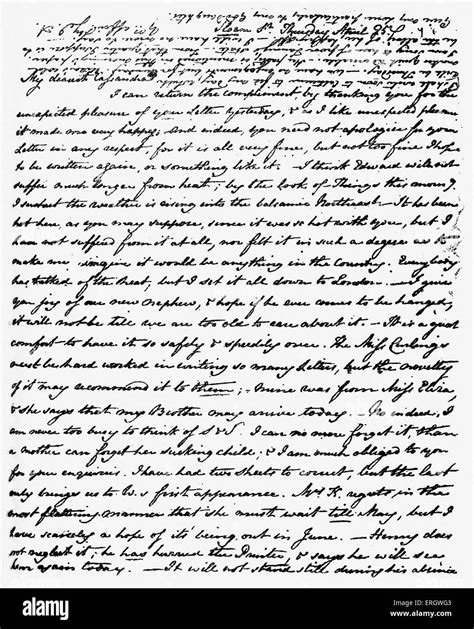 Sloane St. Thursday April 25
My dearest Cassandra
I can return the compliment by thanking you for the
unexpected pleasure of your Letter yesterday, & as I like unexpected pleasure,
it made me very happy; And indeed, you need not apologise for your
Letter in any respect, for it is all very fine, but not too fine I hope
to be written again, or something like it. — I think Edward will not
suffer much longer from heat; by the look of Things this morng
I suspect the weather is rising into the balsamic Northeast. — It has been
hot here, as you may suppose, since it was so hot with you, but I
have not suffered from it at all, nor felt it in such a degree as to
make me imagine it would be anything in the Country. Everybody
has talked of the heat, but I set it all down to London. — I give
you joy of our new nephew, & hope if he ever comes to be hanged,
it will not be till we are too old to care about it. — It is a great
comfort to have it so safely & speedily over. The Miss Curlings
must be hard worked in writing so many Letters, but the novelty
of it may recommend it to them; — mine was from Miss Eliza,
& she says that my Brother may arrive today. — No indeed, I
am never too busy to think of S&S. I can no more forget it, than
a mother can forget her sucking child; & I am much obliged to you
for your enquiries. I have had two sheets to correct, but the last
only brings us to W.s first appearance. Mrs K. regrets in the
most flattering manner that she must wait till May, but I
have scarcely a hope of its being out in June. — Henry does
not neglect it; he has hurried the Printer, & says he will see
him again today. — It will not stand still during his absence
alamy
Image ID: ERGWG3
www.alamy.com